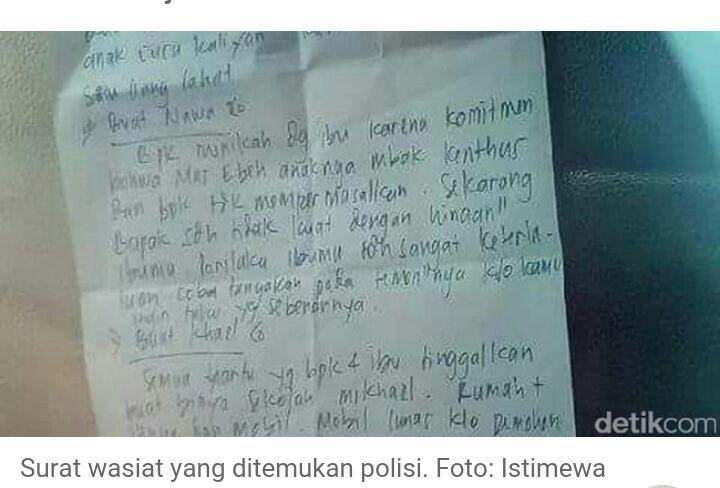 anak cucu kaliyan
satu liang lahat
Buat Nawa Co
Bpk menikah dg ibu karena komitmen
bahwa Mas Ebeh anaknya mbak Kenthus
Dan bpk tdk mempermasalkan. Sekarang
Bapak sdh tidak kuat dengan hinaan"
ibumu. Perilaku ibumu sdh sangat keterla-
luan coba tanyakan pada temon"nya klo kamu
ingin tahu yg sebenarnya.
Buat Khael Co
Semua hartu yg bpk & ibu tinggalkan
buat biaya sekolah mikhael. Rumah +
dan mobil. Mobil lunas klo
detikcom
Surat wasiat yang ditemukan polisi. Foto: Istimewa